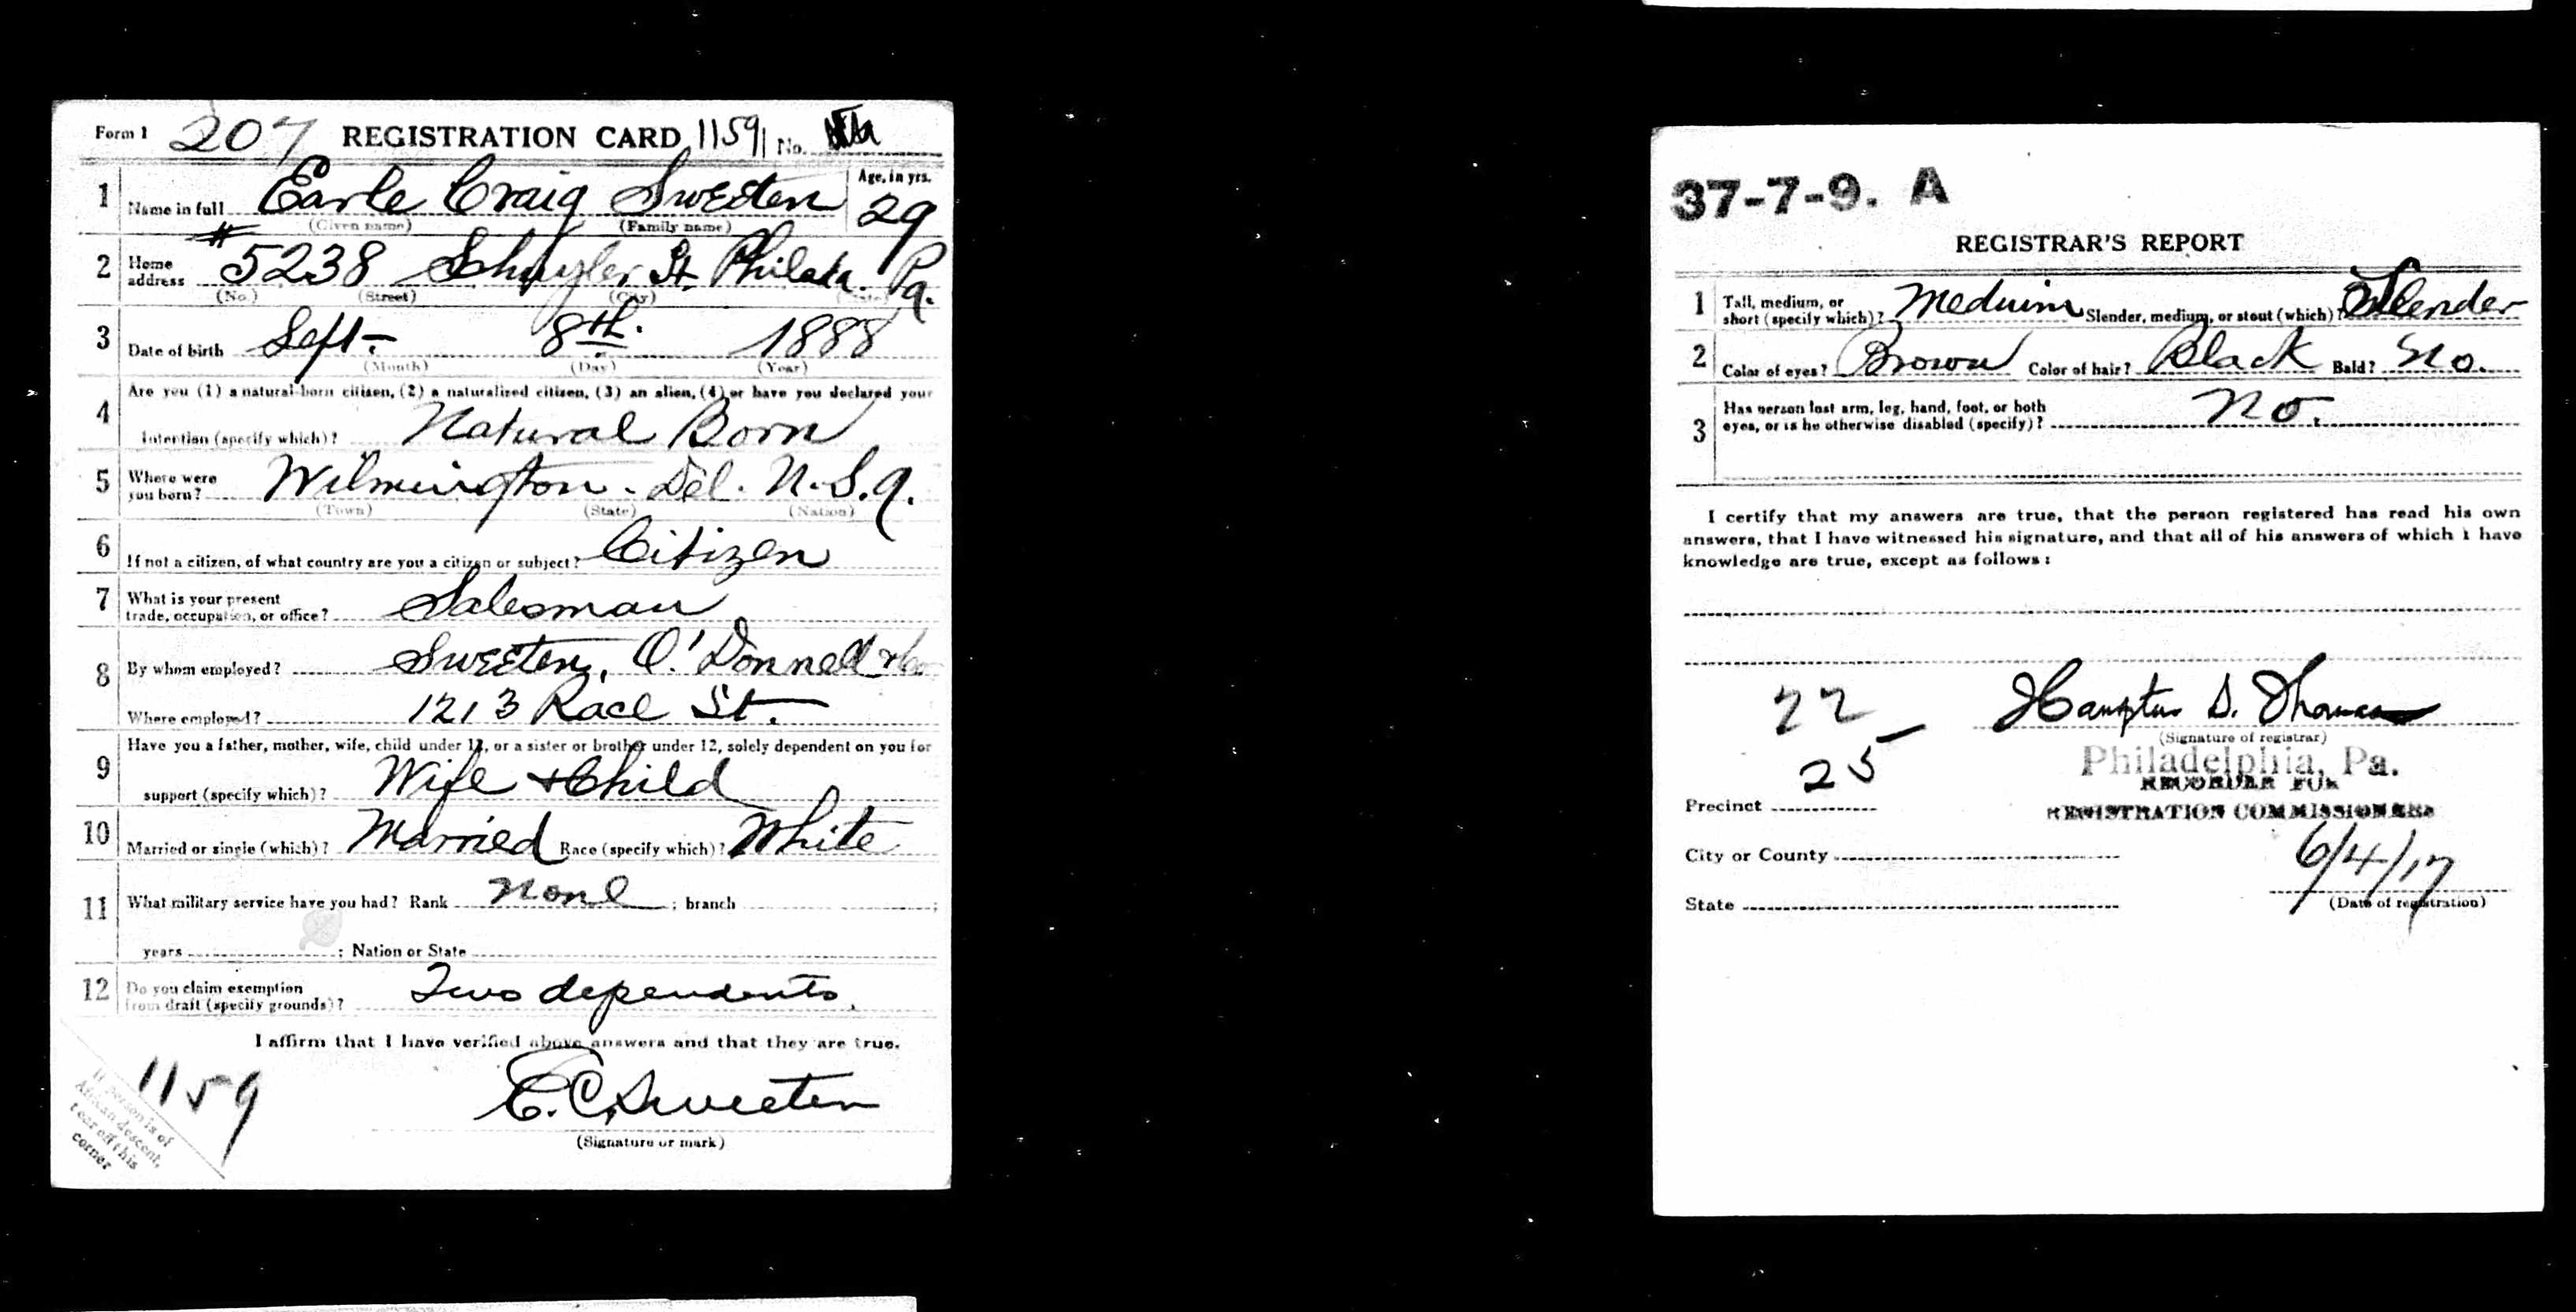 Form 1 207 REGISTRATION CARD 1159 No.
1 Name in full Earle Craig Sweeten Age, in yrs. 29
(Given name) (Family name)
2 Home address # 5238 Schuyler St. Philada. Pa.
(No.) (Street) (City) (State)
3 Date of birth Sept. 8th. 1888
(Month) (Day) (Year)
4 Are you (1) a natural-born citizen, (2) a naturalized citizen, (3) an alien, (4) or have you declared your
intention (specify which)? Natural Born
5 Where were you born? Wilmington - Del. U.S.A.
(Town) (State) (Nation)
6 If not a citizen, of what country are you a citizen or subject? Citizen
7 What is your present trade, occupation, or office? Salesman
8 By whom employed? Sweeten, O'Donnell & Co
Where employed? 1213 Race St.
9 Have you a father, mother, wife, child under 12, or a sister or brother under 12, solely dependent on you for
support (specify which)? Wife & Child
10 Married or single (which)? Married Race (specify which)? White
11 What military service have you had? Rank None ; branch ;
years ; Nation or State
12 Do you claim exemption from draft (specify grounds)? Two dependents.
I affirm that I have verified above answers and that they are true.
E. C. Sweeten
(Signature or mark)
1159
If person is of
African descent,
tear off this
corner
37-7-9. A
REGISTRAR'S REPORT
1 Tall, medium, or short (specify which)? Medium Slender, medium, or stout (which)? Slender
2 Color of eyes? Brown Color of hair? Black Bald? No.
3 Has person lost arm, leg, hand, foot, or both eyes, or is he otherwise disabled (specify)? No.
I certify that my answers are true, that the person registered has read his own
answers, that I have witnessed his signature, and that all of his answers of which I have
knowledge are true, except as follows:
22
Hampton S. Thomas
(Signature of registrar)
Philadelphia, Pa.
RECORDER FOR
REGISTRATION COMMISSIONERS
25
Precinct
City or County
6/4/17
State
(Date of registration)